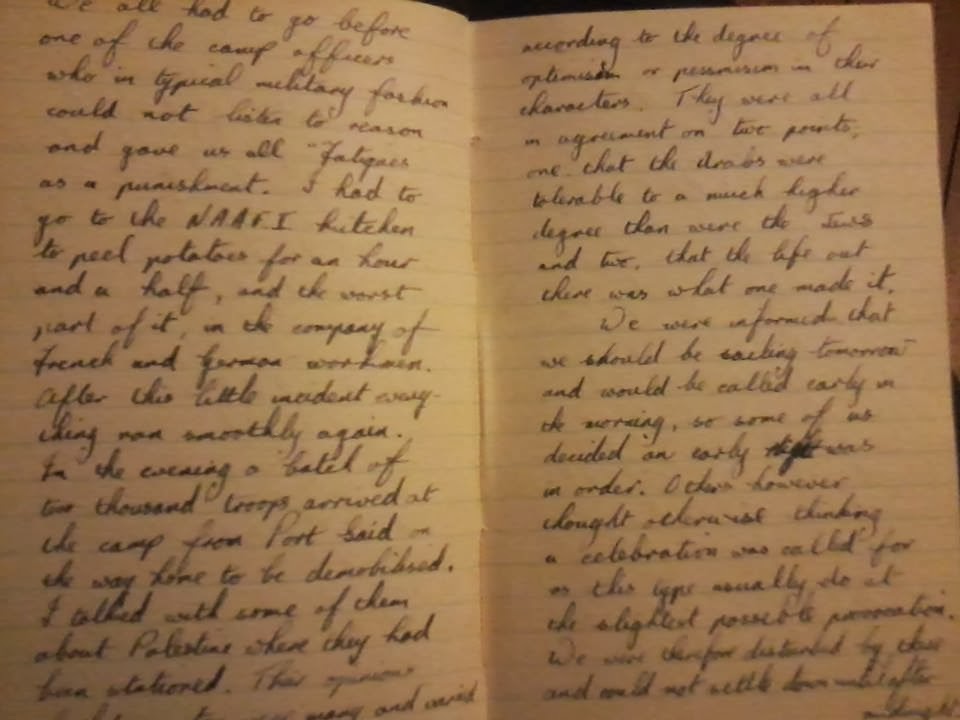 We all had to go before
one of the camp officers
who in typical military fashion
could not listen to reason
and gave us all "Fatigues
as a punishment. I had to
go to the N.A.A.F.I kitchen
to peel potatoes for an hour
and a half, and the worst
part of it, in the company of
French and German workmen.
After this little incident every-
thing ran smoothly again.
In the evening a batch of
two thousand troops arrived at
the camp from Port Said on
the way home to be demobilised.
I talked with some of them
about Palestine where they had
been stationed. Their opinions
many and varied
according to the degree of
optimism or pessimism in their
characters. They were all
in agreement on two points,
one, that the Arabs were
tolerable to a much higher
degree than were the Jews
and two, that the life out
there was what one made it.
We were informed that
we should be sailing tomorrow
and would be called early in
the morning, so some of us
decided an early night was
in order. Others however
thought otherwise thinking
a celebration was called for
as this type usually do at
the slightest possible provocation.
We were therefore disturbed by these
and could not settle down until after
midnight